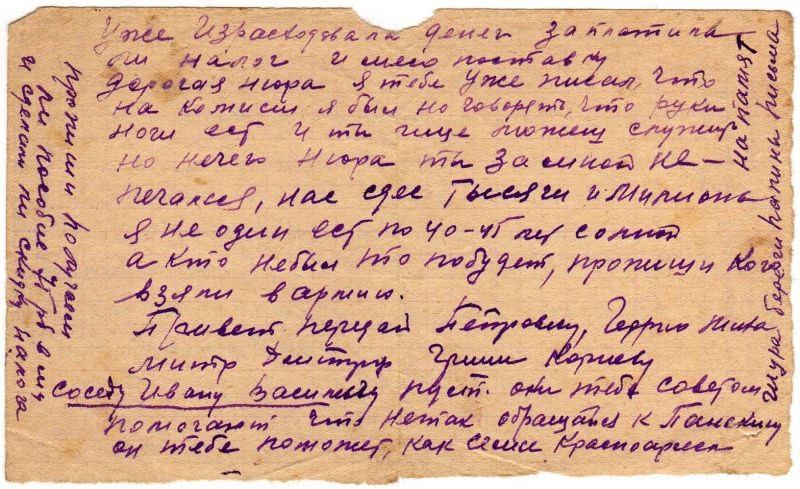 Уже Израсходовала денег заплатила
ли налог и мясо поставку
дорогая нюра я тебе уже писал, что
на комисии я был но говорят, что руки
ноги ест и ты еще можеш служит
но нечего Нюра ты за мной не-
печалися, нас сдес тысячи и милионы
я не один ест по 40-45 лет
а кто небыл то побудет, пропиши кого
взяли в армию.
Привет передай Петровичу,
Гриши
соседу Ивану Васильеву пуст. они тебе советом
помогают что нетак обращайся к
он тебе поможет, как семи Красноармей
пропиши получаеш
ли пособие
и сделали ли скидку налога
Шура береги папины писма
на памят